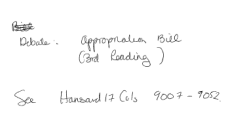 Debate:- Appropriation Bill
(3rd Reading)
See Hansard 17 Cols 9007 - 9052